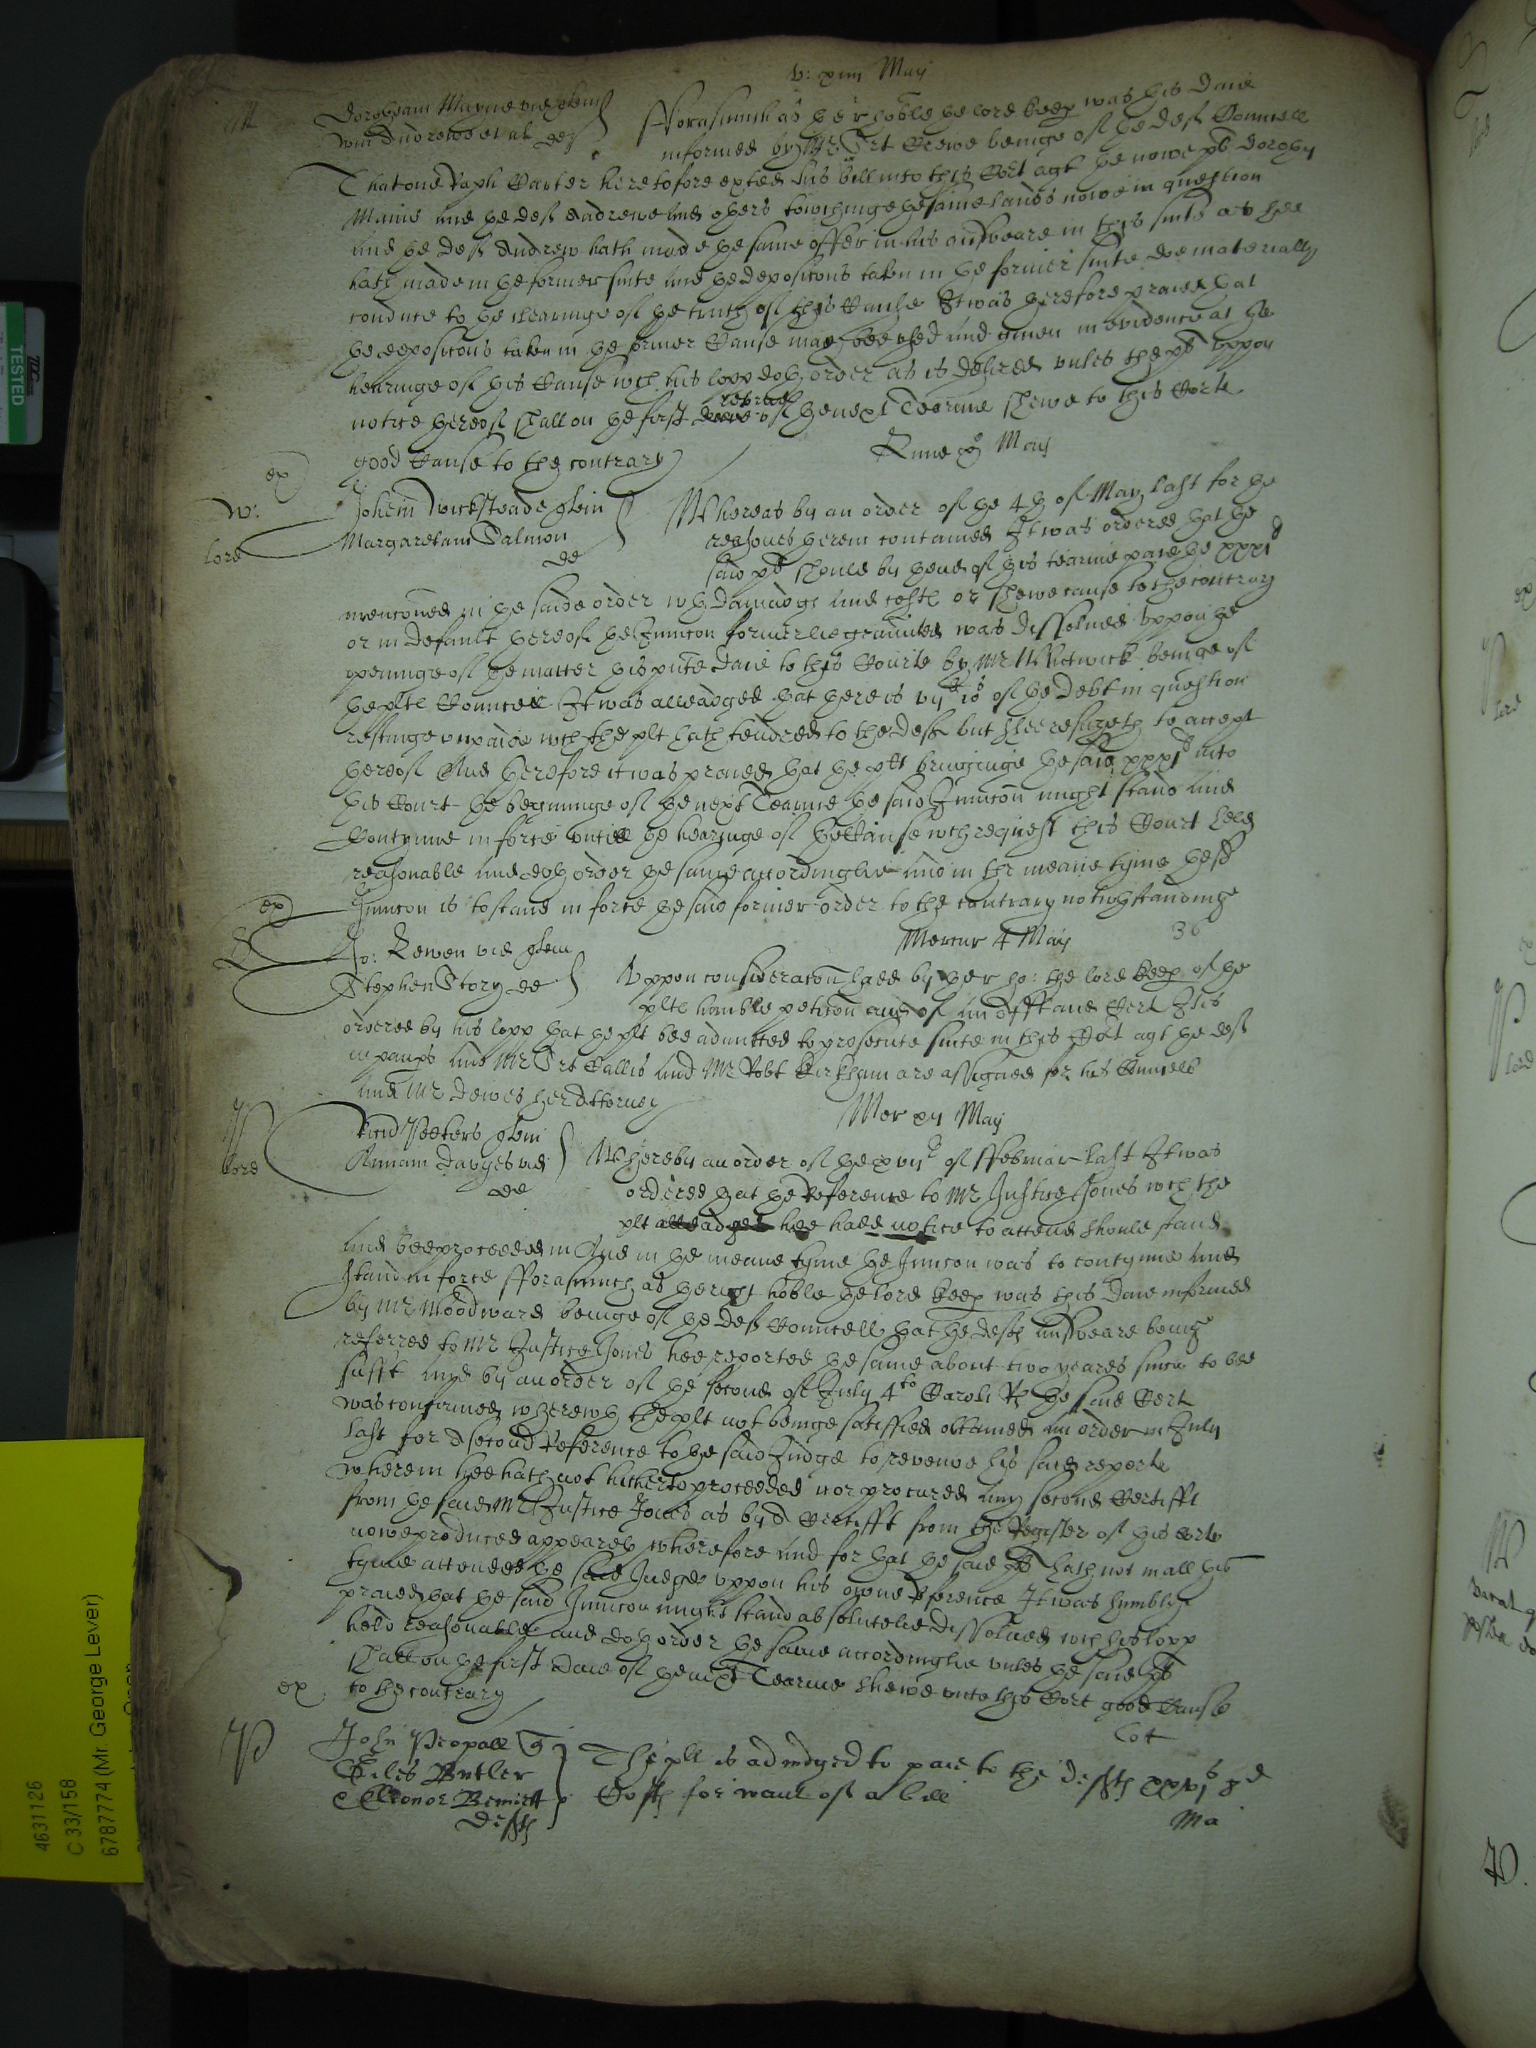 v: xiiii Maij
M
Dorotheam Mayne vid quer
Willm Andrewe et al def
Fforasmuch as the r: hoble the lord keep was this daie
informed by Mr Srt Crewe beinge of the deftes Councell
That one Raph Carter heretofore exhted his bill into this Cort agt the nowe plt Dorothy
Maine and the deft Andrewe and others towchinge the same lands nowe in question
and the deft Andrew hath made the same offer in his answeare in this suite as hee
hath made in the former suite and the deposicons taken in the former suite doe materially
conduce to the clearinge of the truth of this Cause It was therefore praied that
the deposicons taken in the former Cause may bee vsed and given in evidence at the
hearinge of this Cause wch his lopp doth order as is desired vnles the plt vppon
notice thereof shall on the first retorne of the next Tearme shewe to this Corte
good Cause to the contrary
ex
Lune Maij
W:
lord
Johem Wicksteade quer
Margaretam Salmon
de
Whereas by an order of the 4th of May last for the
reasons therein contained It was ordered that the
said plt should by thend of this tearme paie the xxxli
mencioned in the saide order wth damadge and costs or shewe cause to the contrary
or in default thereof the Iniuncon formerlie graunted was dissolued Vppon the
openinge of the matter this pnte daie to this Courte by Mr Whitwick beinge of
the plts Councell It was alleadged that there is of the debt in question
restinge vnpaide wch the plt hath tendred to the deft but shee refuseth to accept
thereof And therefore it was praied that the plt bringinge the said xxxli into
this Court the beginninge of the next Tearme the said Iniuncon might stand and
Contynue in force vntill the hearinge of the Cause wch request this Court held
reasonable and doth order the same accordinglie and in the meane tyme the sd
Iniuncon is to stand in force the said former order to the contrary notwthstandinge
ex
Mercur 4 Maij
36
Jo: Rewen vid quer
Stephen Story de
Vppon consideracon had by the r ho: the lord keep of the
plts humble peticon and of an Afft and Cert It is
ordered by his lopp that the plt bee admitted to prosecute suite in this Cort agt the deft
in paupis and Mr Srt Callis and Mr Robt Kirkham are assigned for his Councell
and Mr Dewes her Attorney
Mer xij Maij
P
lord
Peeters quer
Annam Davyes vid
de
Whereby an order of the xvijth of Ffebruar last It was
ordered that the Reference to Mr Justice Jones wch the
plt alleadged hee hadd notice to attend should stand
and bee proceeded in And in the meane tyme the Iniuncon was to contynue and
stand in force Fforasmuch as the right hoble the lord keep was this daie informed
by Mr Woodward beinge of the deftes Councell that the defts answeare being
referred to Mr Justice Jones hee reported the same about two yeares since to bee
sufft And by an order of the second of July 4to Caroli Rs the said Cert
was confirmed wherewth the plt not beinge satisfied obtained an order in July
last for a second Reference to the said Judge to reveiwe his said reporte
wherein hee hath not hitherto proceeded nor procured any second Certifft
from the said Mr Justice Jones as by a Certifft from the Register of this Corte
nowe produced appeareth wherefore and for that the said plt hath not in all this
tyme attended the said Judge vppon his owne Reference It was humbly
praied that the said Iniuncon might stand absolutelie dissolued wch his lopp
held reasonable and doth order the same accordinglie vnles the said plt
shall on the first daie of the next Tearme shewe vnto this Cort good Cause
to the contrary
ex
Cot
P
John Peopall q
Giles Butler
Ellonor Bennett
defts
The plt is adiudged to paie to the defts xxvjs 8d
Costs for want of a bill
Ma
TESTED
4631126
C 33/158
6787774 (Mr. George Lever)